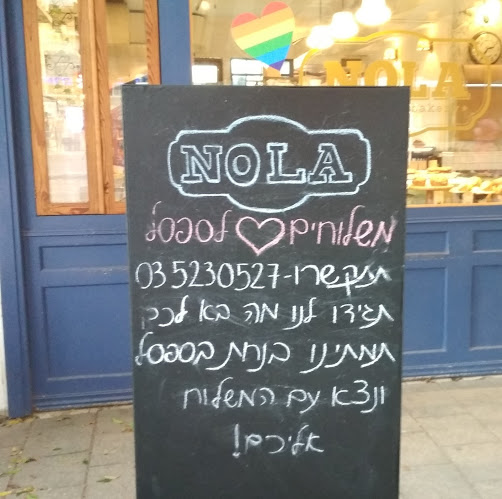 NOLA
NOLA
משלוחים לספסל
תתקשרו-03 5230527
תגידו לנו מה בא לכם
תמתינו בנחת בספסל
ונצא עם המשלוח
אליכם!